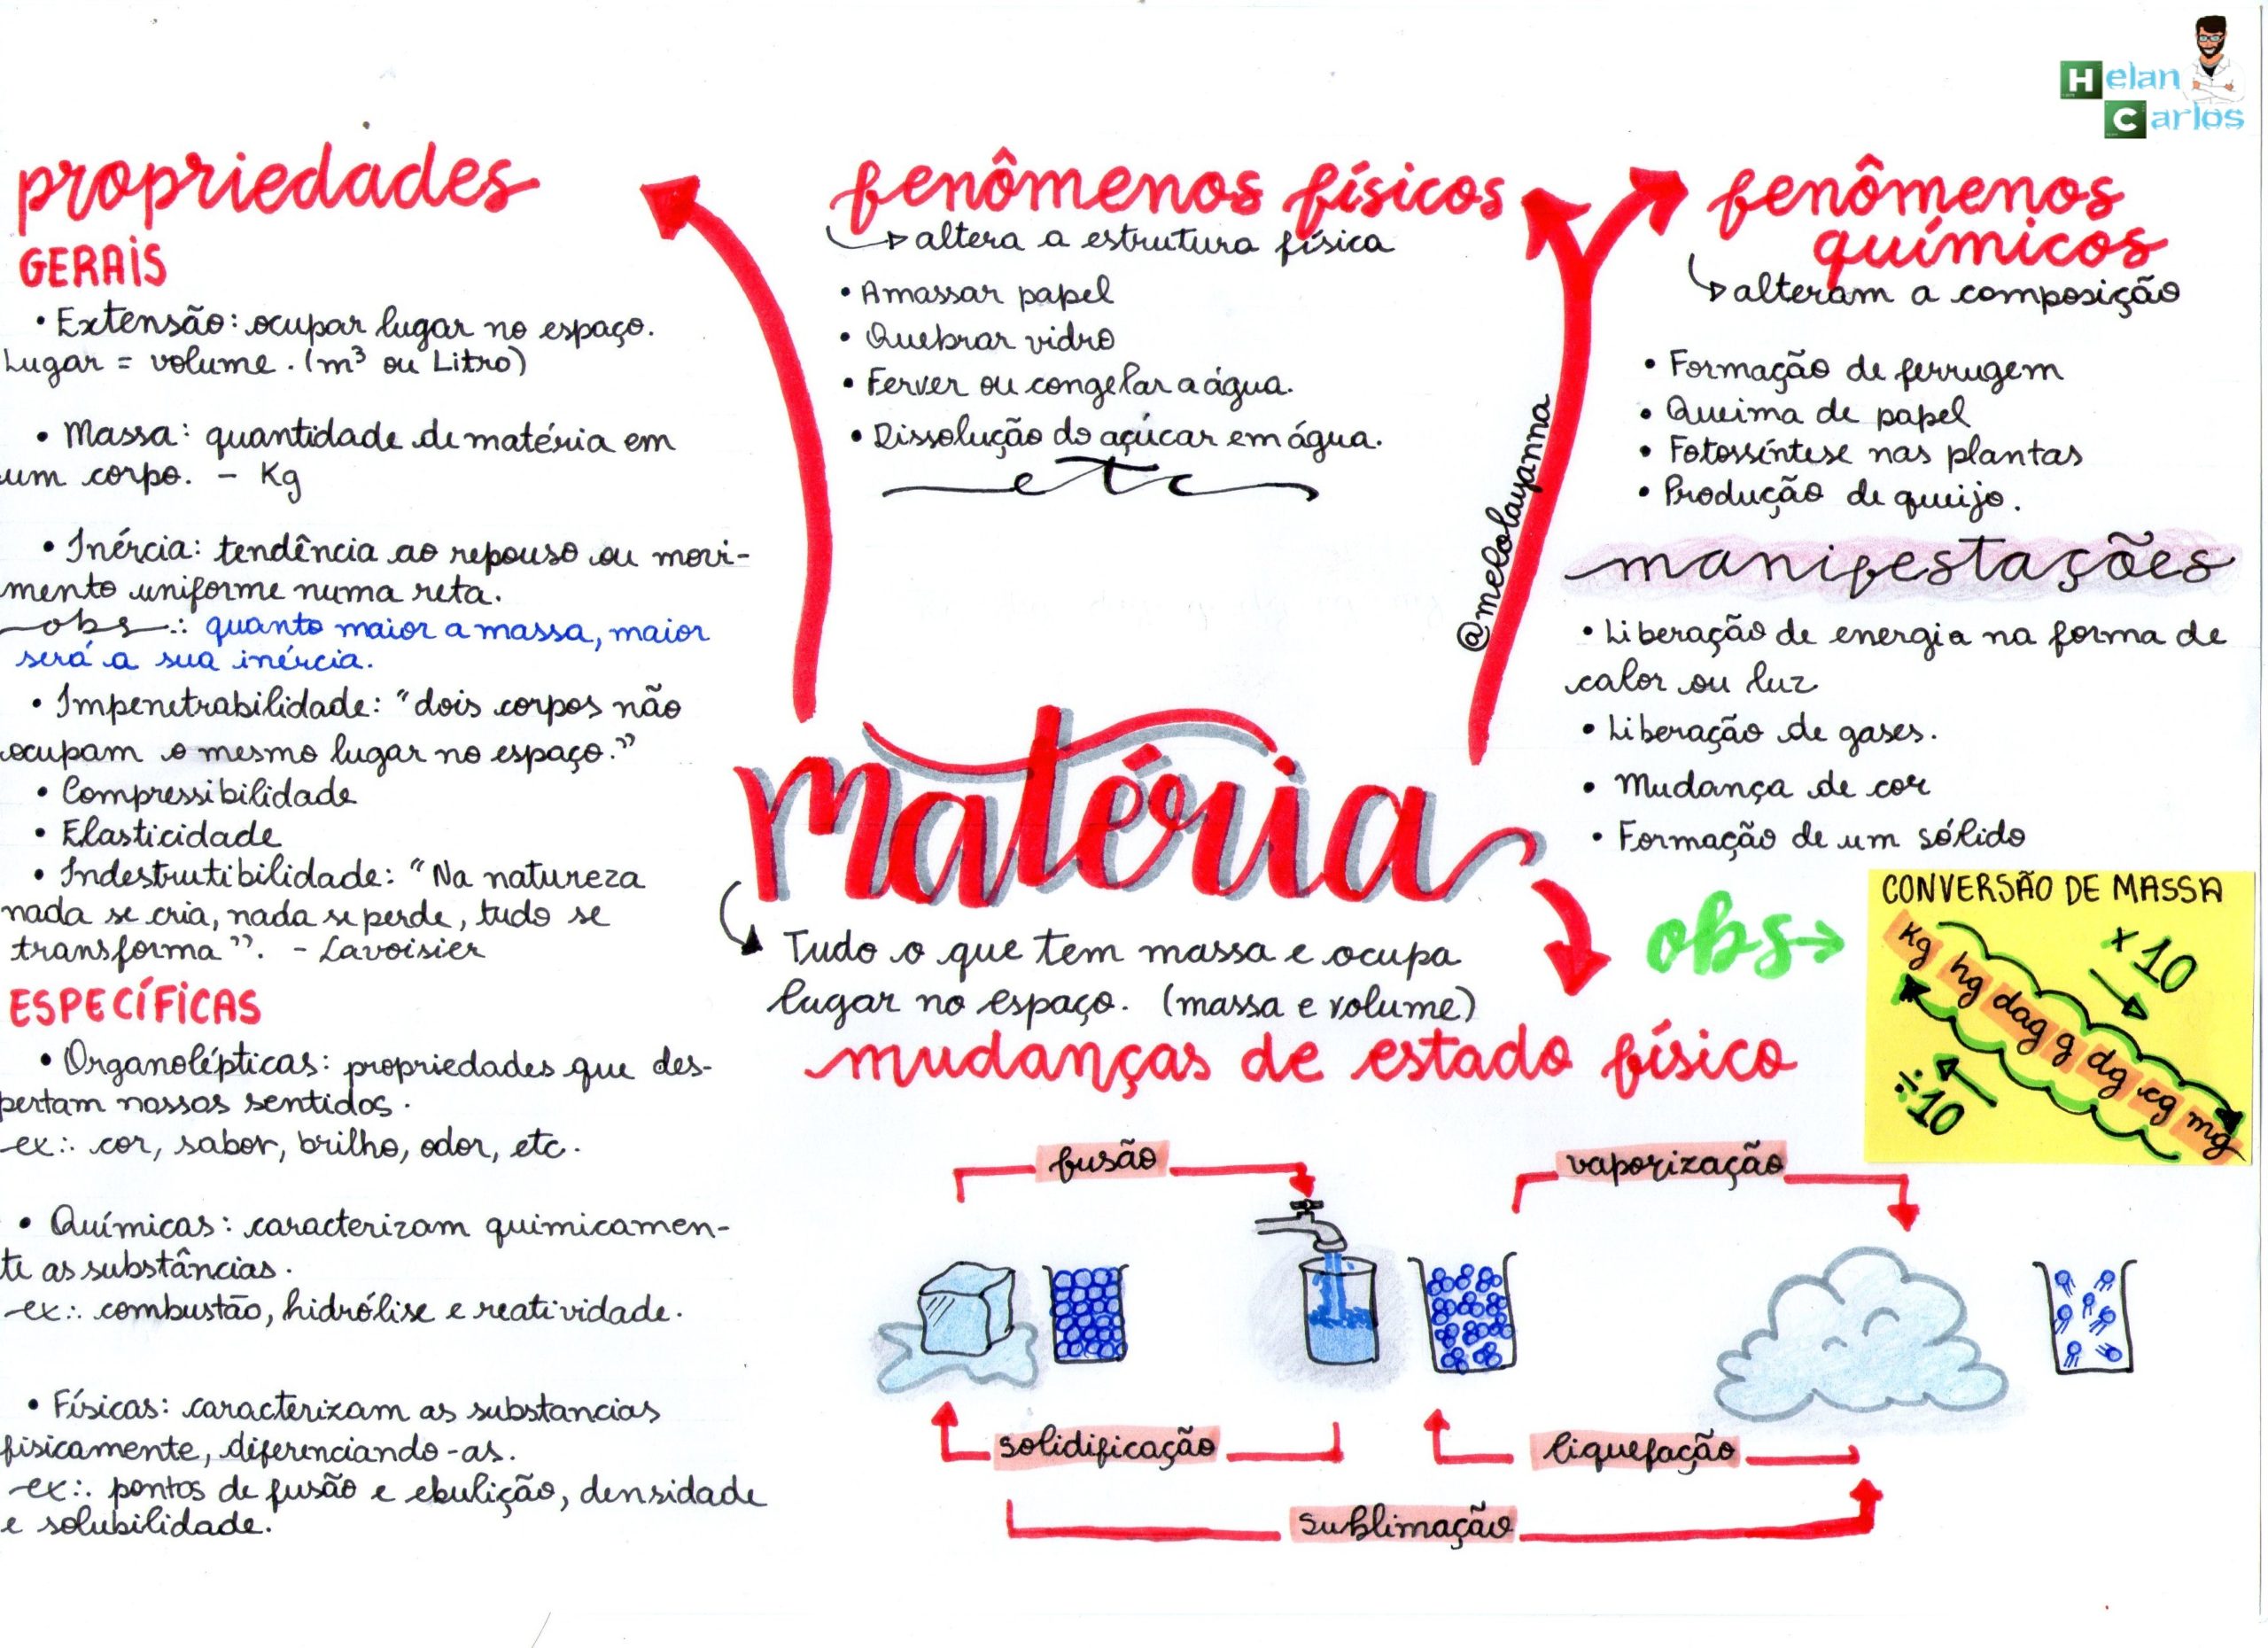 Helan
Carlos
propriedades
GERAIS
• Extensão: ocupar lugar no espaço.
Lugar = volume. (m³ ou Litro)
• Massa: quantidade de matéria em
um corpo. - Kg
• Inércia: tendência ao repouso ou movi-
mento uniforme numa reta.
obs.: quanto maior a massa, maior
será a sua inércia.
• Impenetrabilidade: "dois corpos não
ocupam o mesmo lugar no espaço."
• Compressibilidade
• Elasticidade
• Indestrutibilidade: "Na natureza
nada se cria, nada se perde, tudo se
transforma". - Lavoisier
ESPECÍFICAS
• Organolépticas: propriedades que des-
pertam nossos sentidos.
ex.: cor, sabor, brilho, odor, etc.
• Químicas: caracterizam quimicamen-
te as substâncias.
ex.: combustão, hidrólise e reatividade.
• Físicas: caracterizam as substancias
fisicamente, diferenciando-as.
ex.: pontos de fusão e ebulição, densidade
e solubilidade.
fenômenos físicos
altera a estrutura física
• Amassar papel
• Quebrar vidro
• Ferver ou congelar a água.
• Dissolução do açúcar em água.
etc
@melolayanna
fenômenos
químicos
alteram a composição
• Formação de ferrugem
• Queima de papel
• Fotossíntese nas plantas
• Produção de queijo.
manifestações
• Liberação de energia na forma de
calor ou luz
• Liberação de gases.
• Mudança de cor
• Formação de um sólido
matéria
Tudo o que tem massa e ocupa
lugar no espaço. (massa e volume)
obs
CONVERSÃO DE MASSA
kg hg dag g dg cg mg
x 10
÷10
mudanças de estado físico
fusão
vaporização
solidificação
liquefação
sublimação